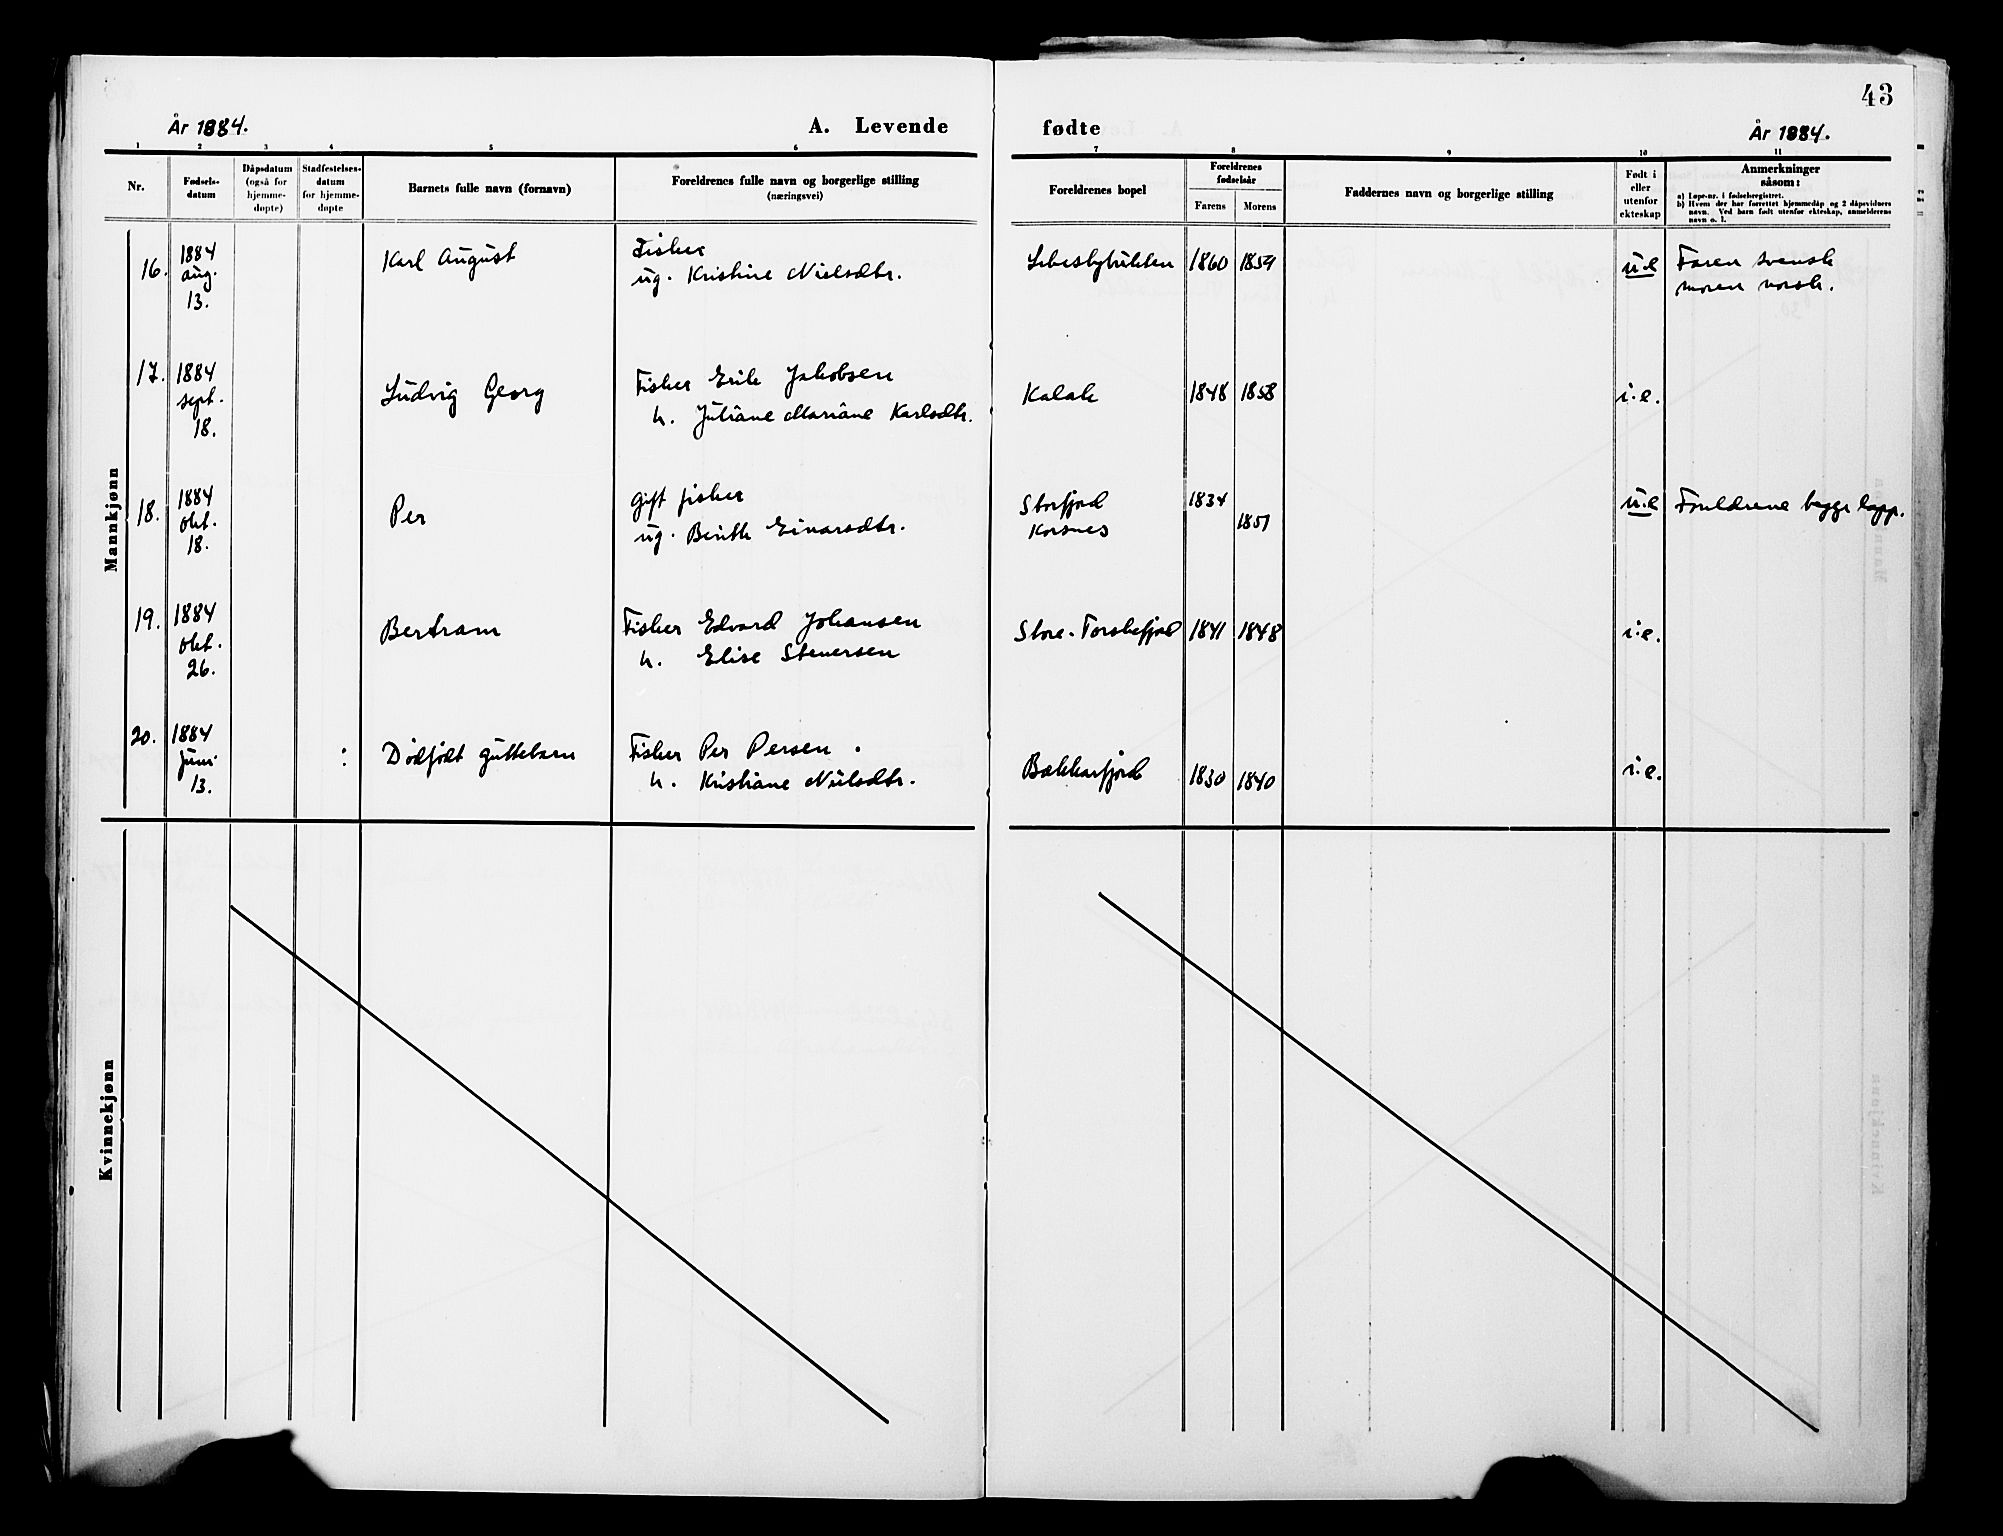 43
År 1884.
A. Levende
fødte
År 1884.
1 2 3 4 5 6 7 8 9 10 11
Nr.
Fødsels-
datum
Dåpsdatum
(også for
hjemme-
døpte)
Stadfestelses-
datum
for hjemme-
døpte
Barnets fulle navn (fornavn)
Foreldrenes fulle navn og borgerlige stilling
(næringsvei)
Foreldrenes bopel
Foreldrenes
fødselsår
Farens
Morens
Faddernes navn og borgerlige stilling
Født i
eller
utenfor
ekteskap
Anmerkninger
såsom:
a) Løpe-nr. i fødselsregistret.
b) Hvem der har forrettet hjemmedåp og 2 dåpsvidners
navn. Ved barn født utenfor ekteskap, anmelderens
navn o. l.
Mannkjønn
16.
1884
aug.
13.
Karl August
Fisker
ug. Kristine Nielsdtr.
Lebesbybukten
1860
1859
u.e
Faren svensk
moren norsk.
17.
1884
sept.
18.
Ludvig Georg
Fisker Erik Jakobsen
h. Juliane Mariane Karlsdtr.
Kalak
1848
1858
i.e.
18.
1884
okt.
18.
Per
gift fisker
ug. Berith Einarsdtr.
Storfjord
Korsnes
1834
1851
u.e
Foreldrene begge lapp.
19.
1884
okt.
26.
Bertram
Fisker Edvard Johansen
h. Elise Stenersen
Store-Torskefjord
1841
1848
i.e.
20.
1884
Juni
13.
:
Dødfødt guttebarn
Fisker Per Persen
h. Kristiane Nielsdtr.
Bekkarfjord
1830
1840
i.e.
Kvinnekjønn